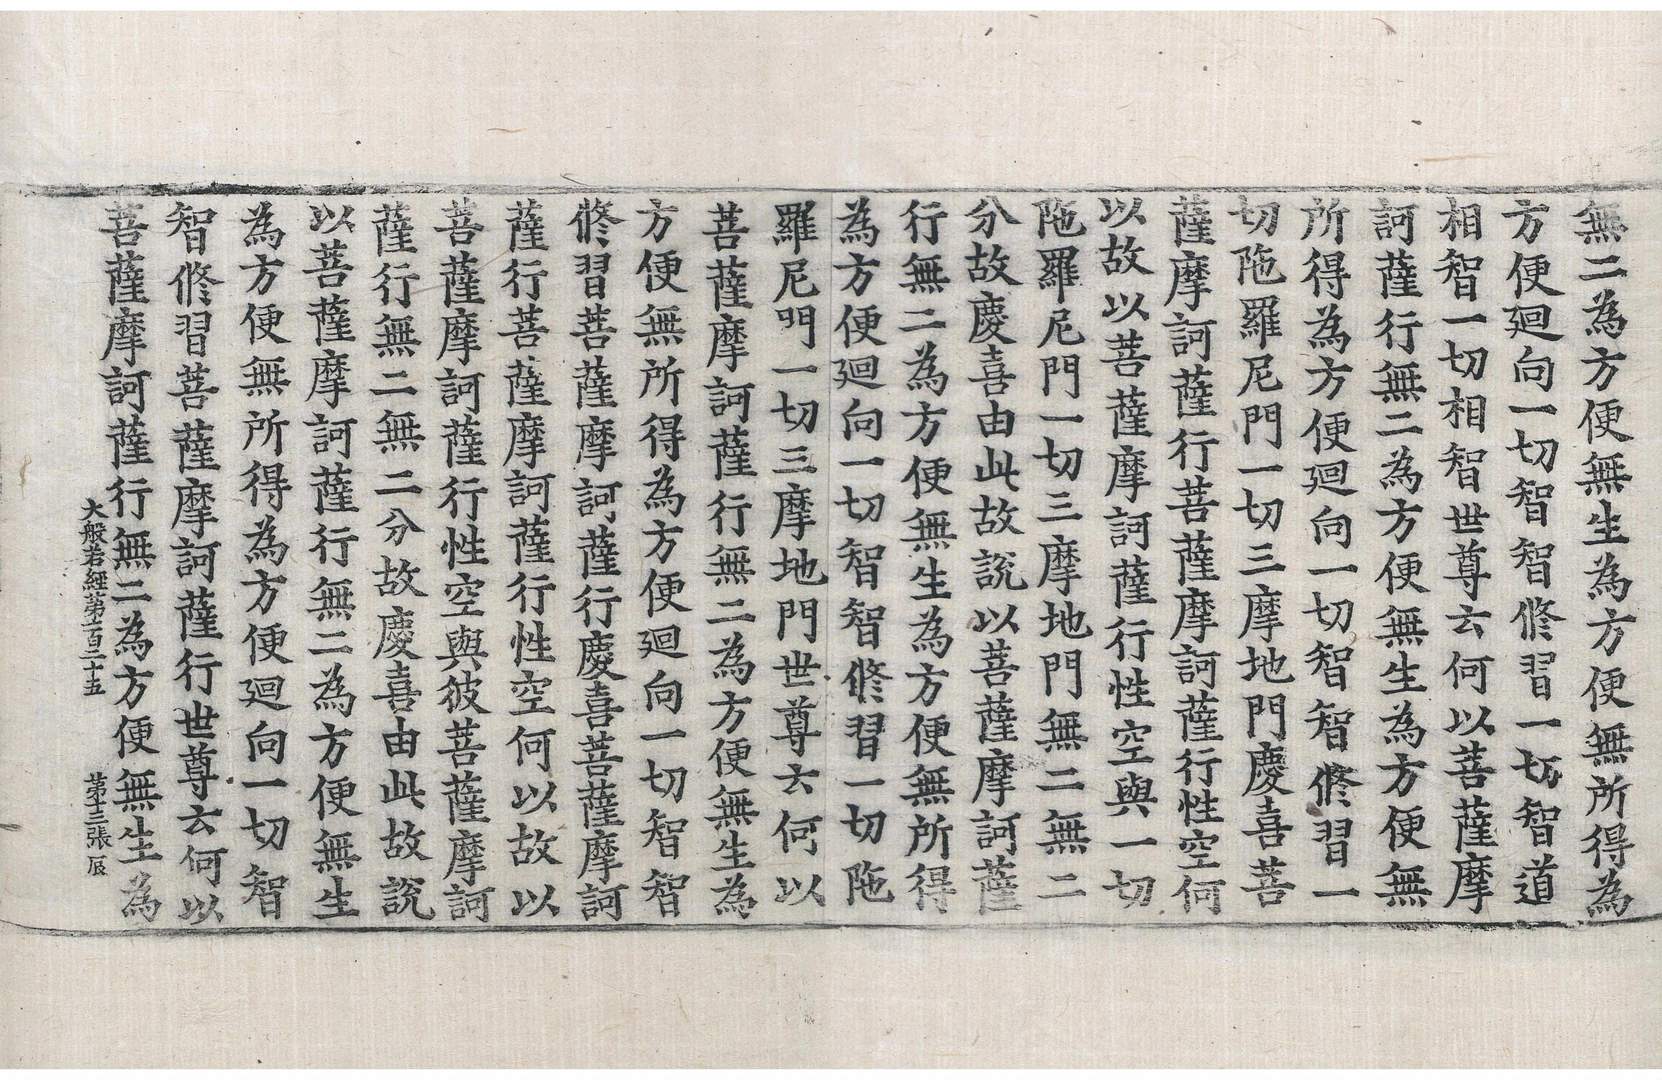 無二為方便無生為方便無所得為
方便迴向一切智智修習一切智道
相智一切相智世尊云何以菩薩摩
訶薩行無二為方便無生為方便無
所得為方便迴向一切智智修習一
切陁羅尼門一切三摩地門慶喜菩
薩摩訶薩行菩薩摩訶薩行性空何
以故以菩薩摩訶薩行性空與一切
陁羅尼門一切三摩地門無二無二
分故慶喜由此故說以菩薩摩訶薩
行無二為方便無生為方便無所得
為方便迴向一切智智修習一切陁
羅尼門一切三摩地門世尊云何以
菩薩摩訶薩行無二為方便無生為
方便無所得為方便迴向一切智智
修習菩薩摩訶薩行慶喜菩薩摩訶
薩行菩薩摩訶薩行性空何以故以
菩薩摩訶薩行性空與彼菩薩摩訶
薩行無二無二分故慶喜由此故說
以菩薩摩訶薩行無二為方便無生
為方便無所得為方便迴向一切智
智修習菩薩摩訶薩行世尊云何以
菩薩摩訶薩行無二為方便無生為
大般若經第一百二十五 第十三張 辰